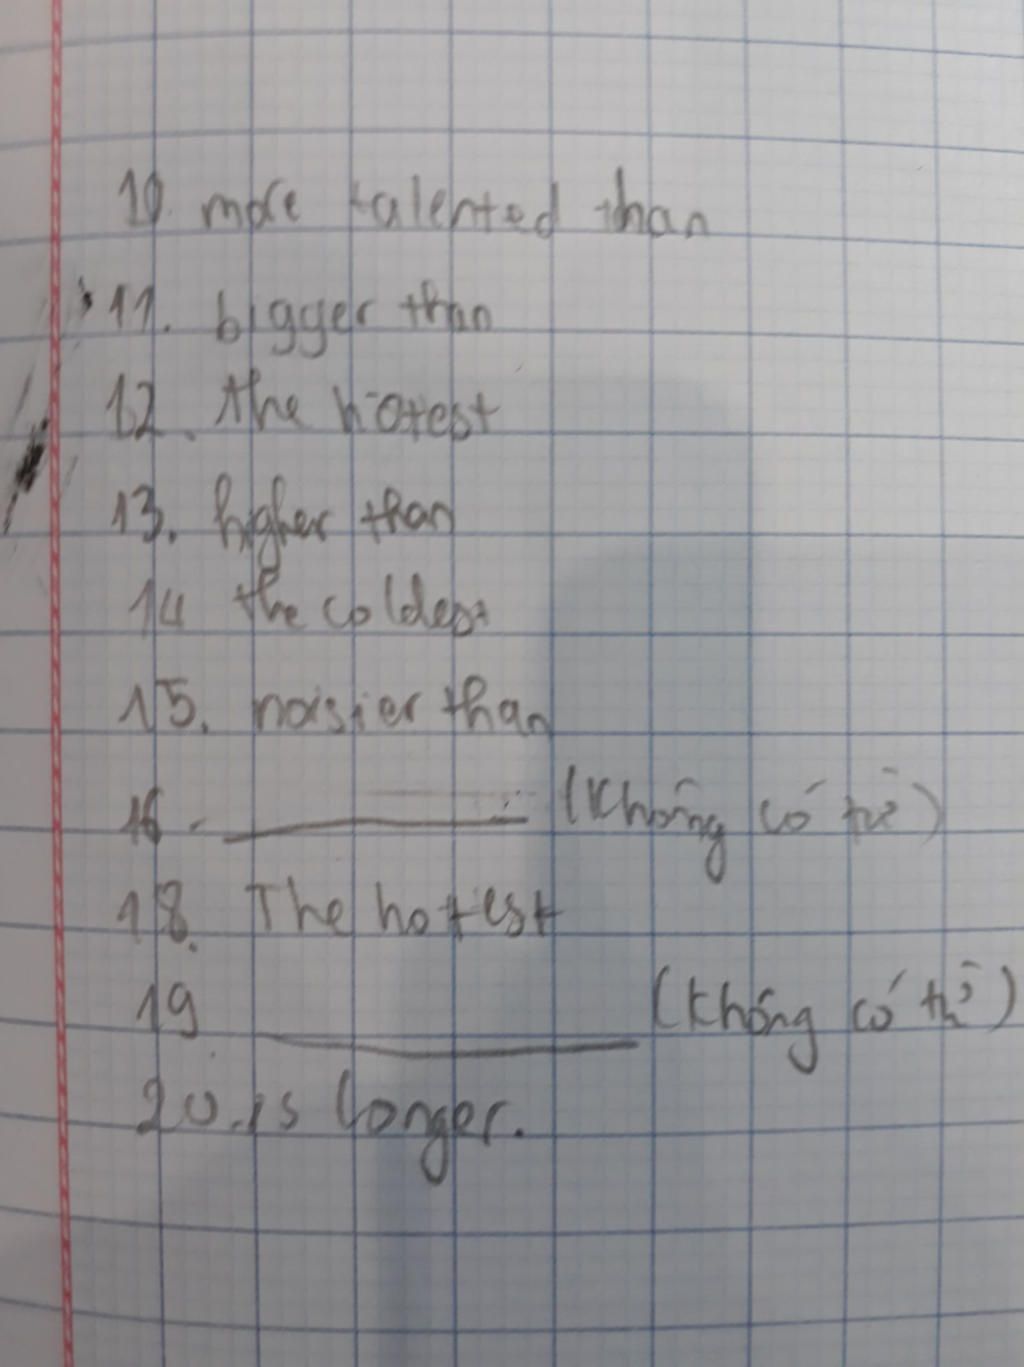 10. more talented than
11. bigger than
12. the hotest
13. higher than
14 the coldest
15. noisier than
16. (Không có từ)
18. The hottest
19 (Không có từ)
20. is longer.